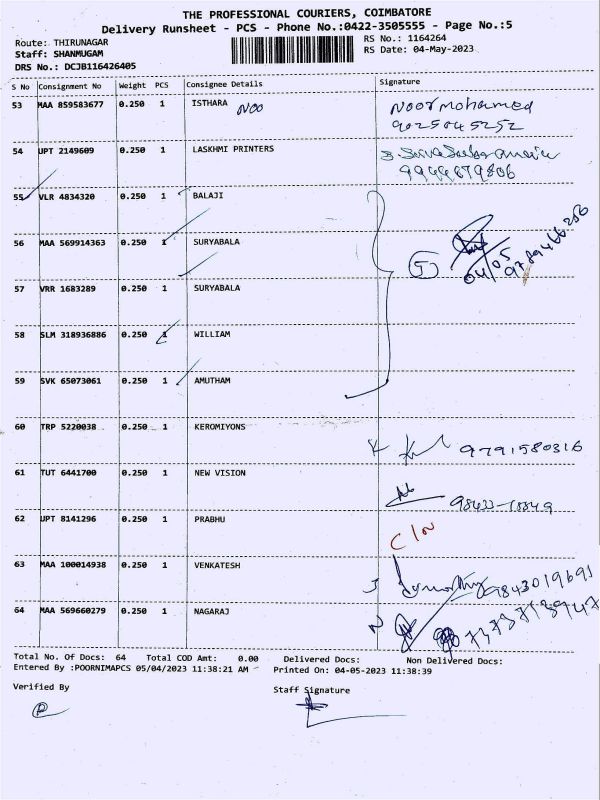 THE PROFESSIONAL COURIERS, COIMBATORE
Delivery Runsheet - PCS - Phone No.:0422-3505555 - Page No.:5
Route: THIRUNAGAR
RS No.: 1164264
Staff: SHANMUGAM
RS Date: 04-May-2023
DRS No.: DCJB116426405
S No Consignment No Weight PCS Consignee Details Signature
53 MAA 859583677 0.250 1 ISTHARA NOO Noor mohamed
9025045252
54 UPT 2149609 0.250 1 LASKHMI PRINTERS
9944879806
55 VLR 4834320 0.250 1 BALAJI
56 MAA 569914363 0.250 1 SURYABALA 5 04/05
9789466256
57 VRR 1683289 0.250 1 SURYABALA
58 SLM 318936886 0.250 1 WILLIAM
59 SVK 65073061 0.250 1 AMUTHAM
60 TRP 5220038 0.250 1 KEROMIYONS 9791580316
61 TUT 6441700 0.250 1 NEW VISION
98433-18849
62 UPT 8141296 0.250 1 PRABHU C/N
63 MAA 100014938 0.250 1 VENKATESH 9843019691
64 MAA 569660279 0.250 1 NAGARAJ
Total No. Of Docs: 64 Total COD Amt: 0.00 Delivered Docs: Non Delivered Docs:
Entered By :POORNIMAPCS 05/04/2023 11:38:21 AM Printed On: 04-05-2023 11:38:39
Verified By
Staff Signature